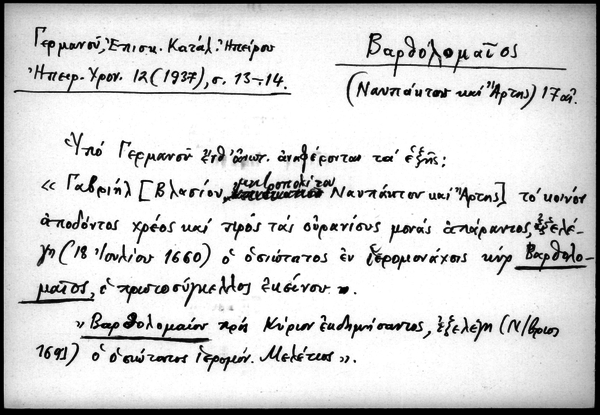 Γερμανοῦ, Ἐπισκ. Κατάλ. Ἠπείρου
Ἠπειρ. Χρον. 12 (1937), σ. 13-14.
Βαρθολομαῖος
(Ναυπάκτου καὶ Ἄρτης) 17 αἰ.
Ὑπὸ Γερμανοῦ ἔνθ' ἀνωτ. ἀναφέρονται τὰ ἑξῆς:
«Γαβριήλ [Βλασίου, μητροπολίτου Ναυπάκτου καὶ Ἄρτης] τὸ κοινὸν
ἀποδόντος χρέος καὶ πρὸς τὰς οὐρανίους μονὰς ἀπάραντος, ἐξελέ-
γη (18 Ἰουλίου 1660) ὁ ὁσιώτατος ἐν ἱερομονάχοις κὺρ Βαρθολο-
μαῖος, ὁ πρωτοσύγκελλος ἐκείνου».
»Βαρθολομαίου πρὸς Κύριον ἐκδημήσαντος, ἐξελέγη (Ν/βριος
1691) ὁ ὁσιώτατος ἱερομόν. Μελέτιος».